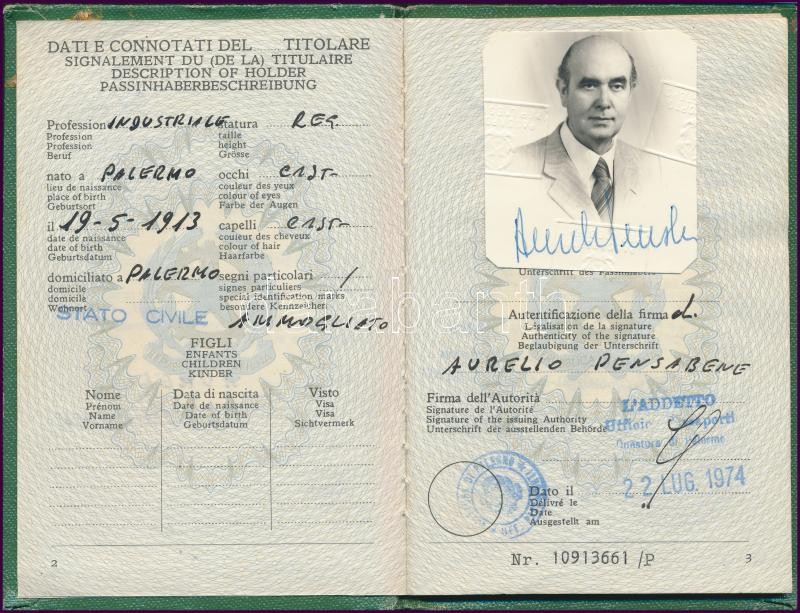 DATI E CONNOTATI DEL TITOLARE
SIGNALEMENT DU (DE LA) TITULAIRE
DESCRIPTION OF HOLDER
PASSINHABERBESCHREIBUNG
Profession INDUSTRIALE
Profession
Profession
Beruf
statura REG.
taille
height
Grösse
nato a PALERMO
lieu de naissance
place of birth
Geburtsort
occhi CAST-
couleur des yeux
colour of eyes
Farbe der Augen
il 19-5-1913
date de naissance
date of birth
Geburtsdatum
capelli CAST-
couleur des cheveux
colour of hair
Haarfarbe
domiciliato a PALERMO
domicile
domicile
Wohnort
segni particolari /
signes particuliers
special identification marks
besondere Kennzeichen
STATO CIVILE AMMOGLIATO
FIGLI
ENFANTS
CHILDREN
KINDER
Nome
Prénom
Name
Vorname
Data di nascita
Date de naissance
Date of birth
Geburtsdatum
Visto
Visa
Visa
Sichtvermerk
2
Unterschrift des Passinhabers
Autentificazione della firma di
Légalisation de la signature
Authenticity of the signature
Beglaubigung der Unterschrift
AURELIO PENSABENE
Firma dell'Autorità
Signature de l'Autorité
Signature of the issuing Authority
Unterschrift der ausstellenden Behörde
L'ADDETTO
Ufficio Passaporti
Questura di Palermo
Dato il
Délivré le
Date
Ausgestellt am
22 LUG. 1974
Nr. 10913661/P
3
darabanth.com